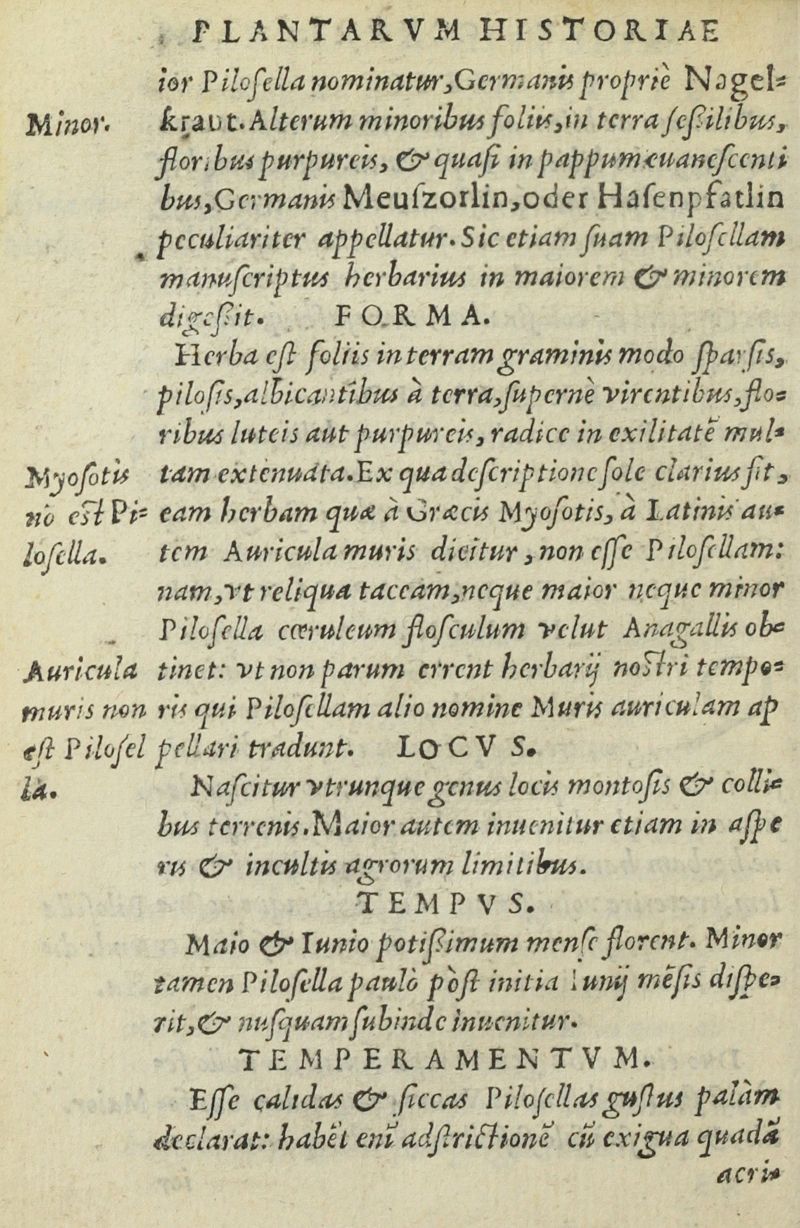 PLANTARVM HISTORIAE
ior Piloſella nominatur, Germanis propriè Nagel-
Minor.
kraut. Alterum minoribus folijs, in terra ſeßilibus,
floribus purpureis, & quaſi in pappum euaneſcenti
bus, Germanis Meuſzorlin, oder Haſenpfatlin
peculiariter appellatur. Sic etiam ſuam Piloſellam
manuſcriptus herbarius in maiorem & minorem
digeßit. FORMA.
Herba eſt folijs in terram graminis modo ſparſis,
piloſis, albicantibus à terra, ſupernè virentibus, flo-
ribus luteis aut purpureis, radice in exilitatē mul-
Myoſotis
nō eſt Pi-
loſella.
tam extenuata. Ex qua deſcriptione ſole clarius fit,
eam herbam quæ à Græcis Myoſotis, à Latinis au-
tem Auricula muris dicitur, non eſſe Piloſellam:
nam, vt reliqua taceam, neque maior neque minor
Piloſella cœruleum floſculum velut Anagallis ob-
Auricula
muris non
eſt Piloſel
la.
tinet: vt non parum errent herbarij noſtri tempo-
ris qui Piloſellam alio nomine Muris auriculam ap
pellari tradunt. LOCVS.
Naſcitur vtrunque genus locis montoſis & colli-
bus terrenis. Maior autem inuenitur etiam in aſpe
ris & incultis agrorum limitibus.
TEMPVS.
Maio & Iunio potißimum menſe florent. Minor
tamen Piloſella paulò pòſt initia Iunij mēſis diſpe-
rit, & nuſquam ſubinde inuenitur.
TEMPERAMENTVM.
Eſſe calidas & ſiccas Piloſellas guſtus palàm
declarat: habēt enī adſtrictionē cū exigua quadā
acri-